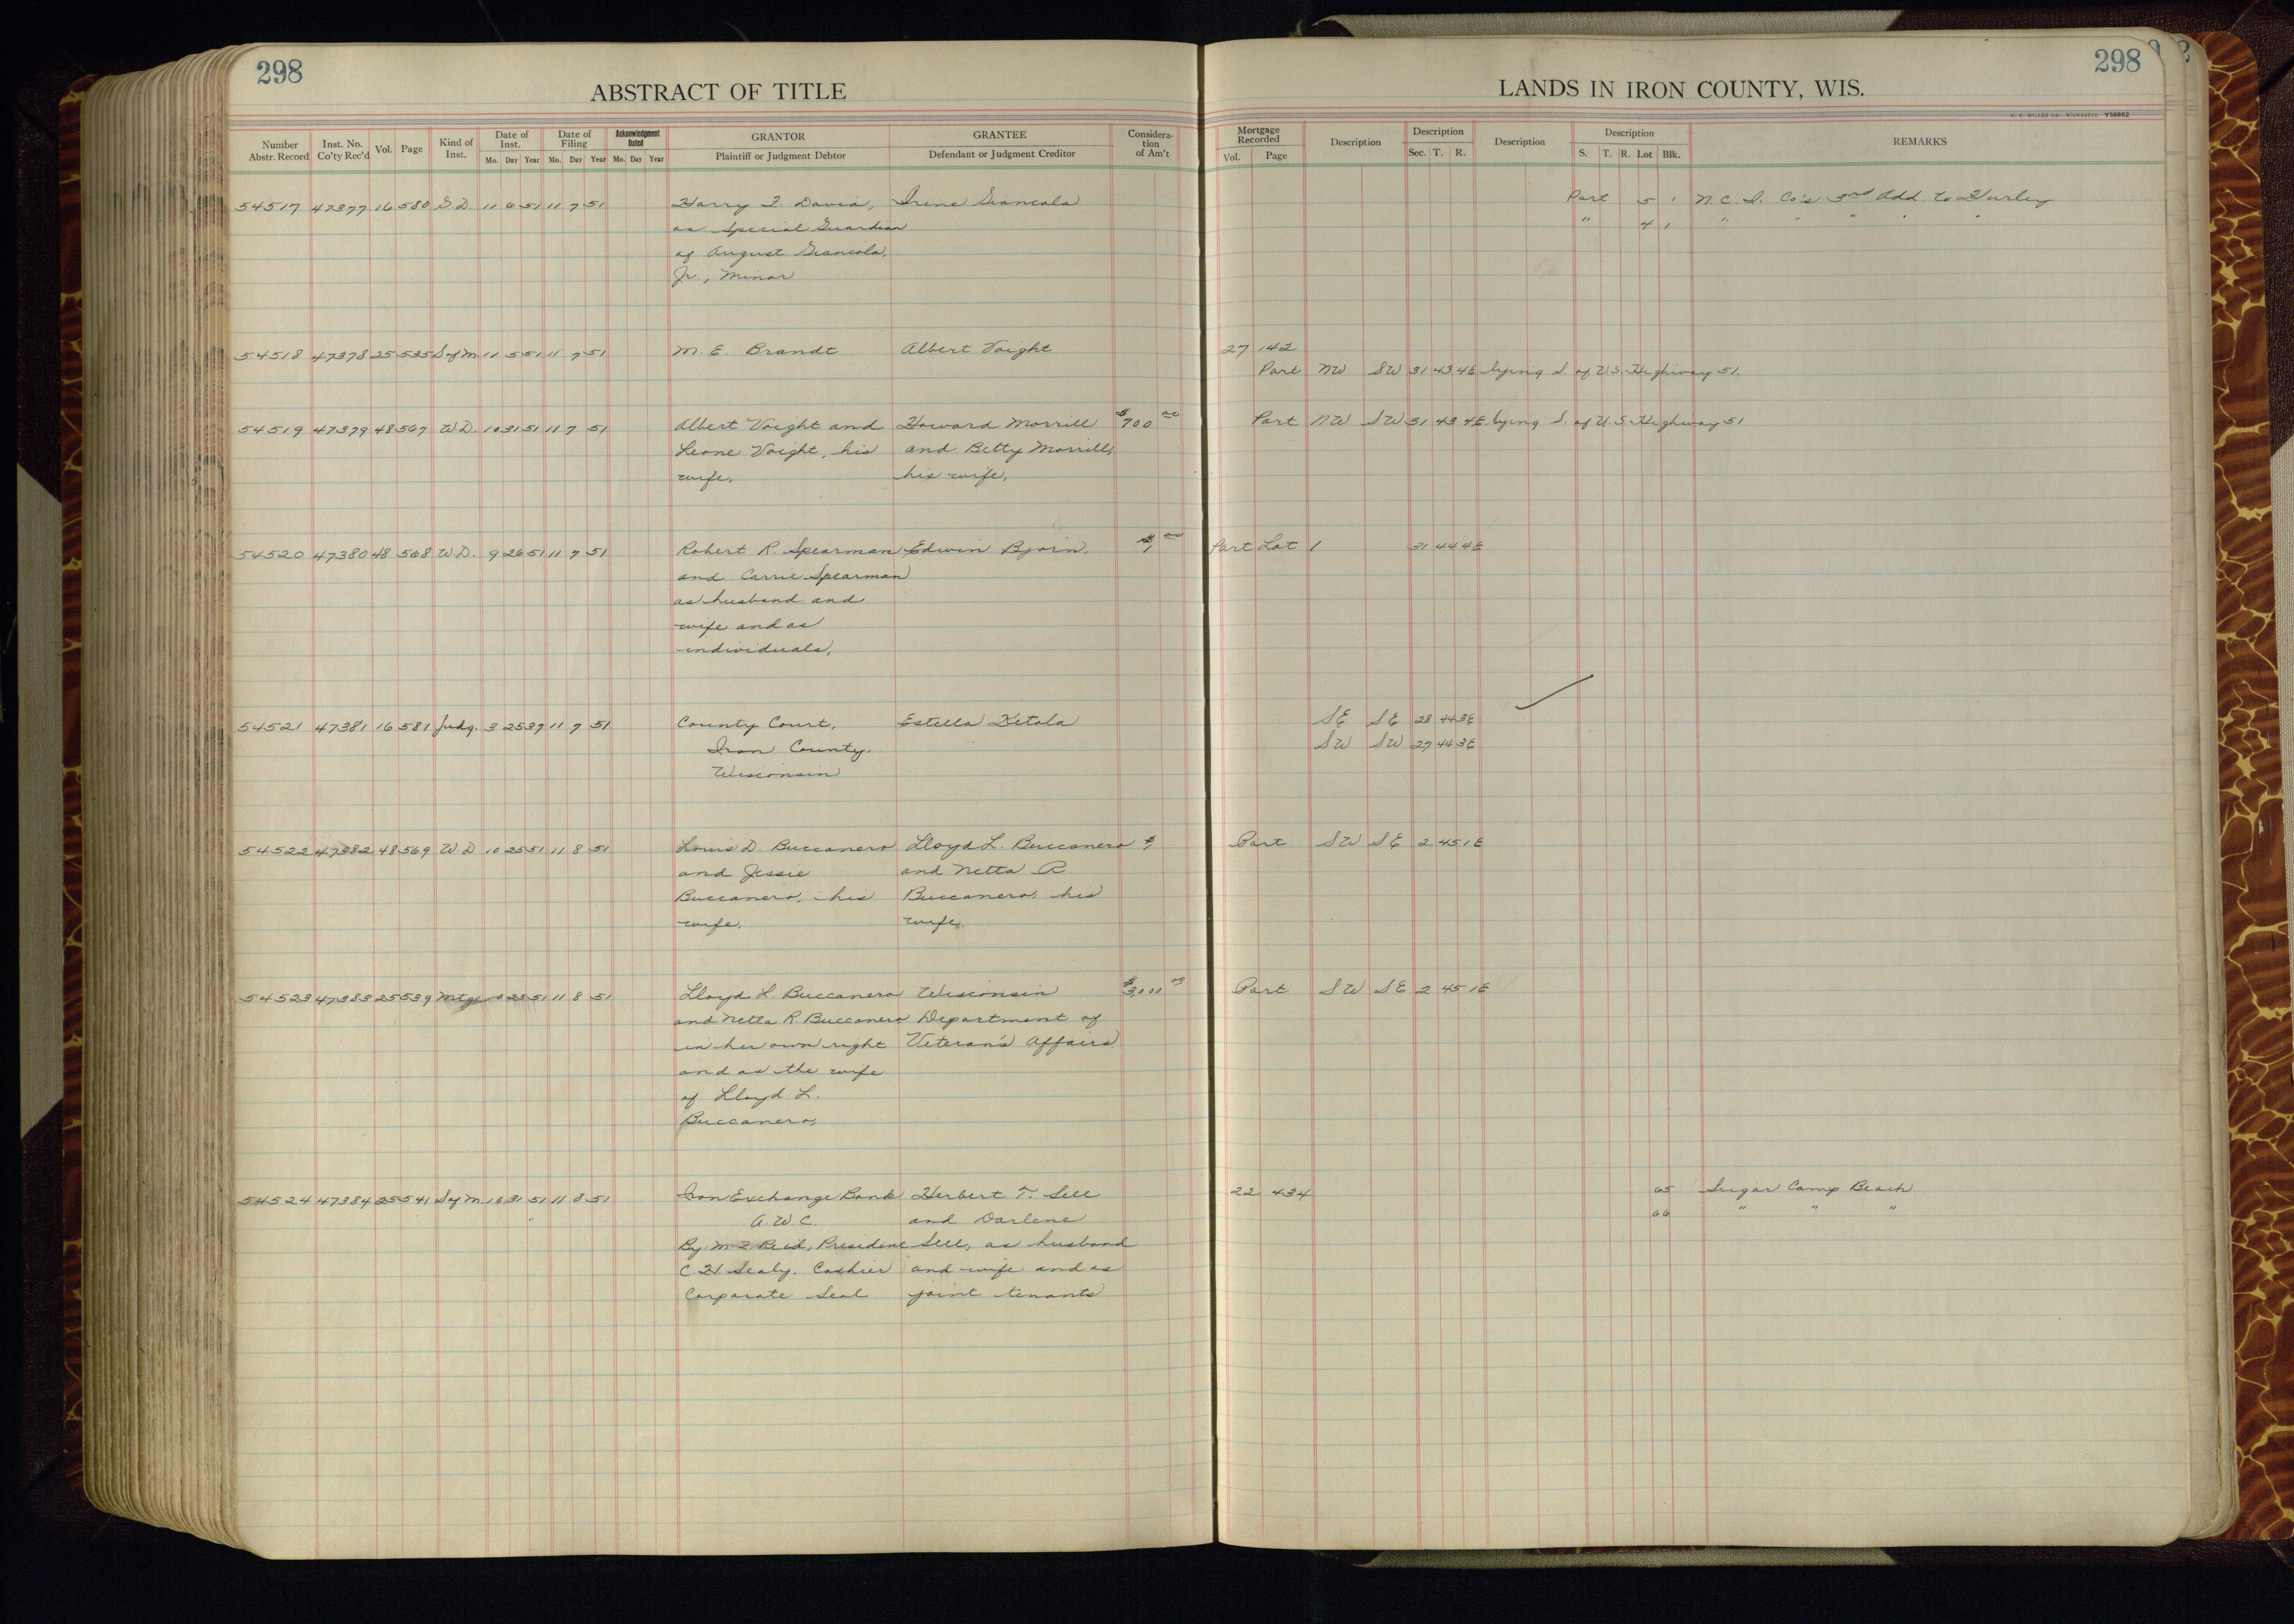 298
ABSTRACT OF TITLE
Number Abstr. Record
Inst. No. Co'ty Rec'd
Vol.
Page
Kind of Inst.
Date of Inst.
Mo. Day Year
Date of Filing
Mo. Day Year
Acknowledgment Dated
Mo. Day Year
GRANTOR
Plaintiff or Judgment Debtor
GRANTEE
Defendant or Judgment Creditor
Considera-
tion
of Am't
54517 47377 16 580 G.D. 11 6 51 11 7 51 Harry F. Davia, Irene Giancola
as Special Guardian
of August Giancola,
Jr., Minor
54518 47378 25 535 S of M 11 5 51 11 7 51 M. E. Brandt Albert Voight
54519 47379 48 567 W.D. 10 31 51 11 7 51 Albert Voight and Howard Morrill $700 00
Leone Voight, his and Betty Morrill,
wife. his wife.
54520 47380 48 568 W.D. 9 26 51 11 7 51 Robert R. Spearman Edwin Bjorn. $1 00
and Carrie Spearman
as husband and
wife and as
individuals.
54521 47381 16 581 Judg. 3 25 37 11 7 51 County Court, Estella Ketola
Iron County.
Wisconsin
54522 47382 48 569 W.D 10 25 51 11 8 51 Louis D. Buccanero Lloyd L. Buccanero $1
and Jessie and Netta R.
Buccanero, his Buccanero, his
wife. wife.
54523 47383 25 539 Mtge 10 25 51 11 8 51 Lloyd L. Buccanero Wisconsin $3,000 00
and Netta R. Buccanero Department of
in her own right Veteran's Affairs
and as the wife
of Lloyd L.
Buccanero,
54524 47384 25 541 S of M. 10 31 51 11 8 51 Iron Exchange Bank Herbert T. Sell
A.W.C. and Darlene
By M. Z. Reid, President Sell, as husband
C. H Sealy. Cashier and wife and as
Corporate Seal joint tenants
298
LANDS IN IRON COUNTY, WIS.
H. C. MILLER CO., MILWAUKEE Y56882
Mortgage Recorded
Vol. Page
Description
Description
Sec. T. R.
Description
Description
S. T. R. Lot Blk.
REMARKS
Part 5 1 N. C. I. Co's 3rd Add. to Hurley
" 4 1 " " " " "
27 142
Part NW SW 31 43 4E lying S. of U.S. Highway 51.
Part NW SW 31 43 4E lying S. of U.S. Highway 51
Part Lot 1 31 44 4E
SE SE 28 44 3E
SW SW 27 44 3E
Part SW SE 2 45 1E
Part SW SE 2 45 1E
22 434 65 Sugar Camp Beach
66 " " "